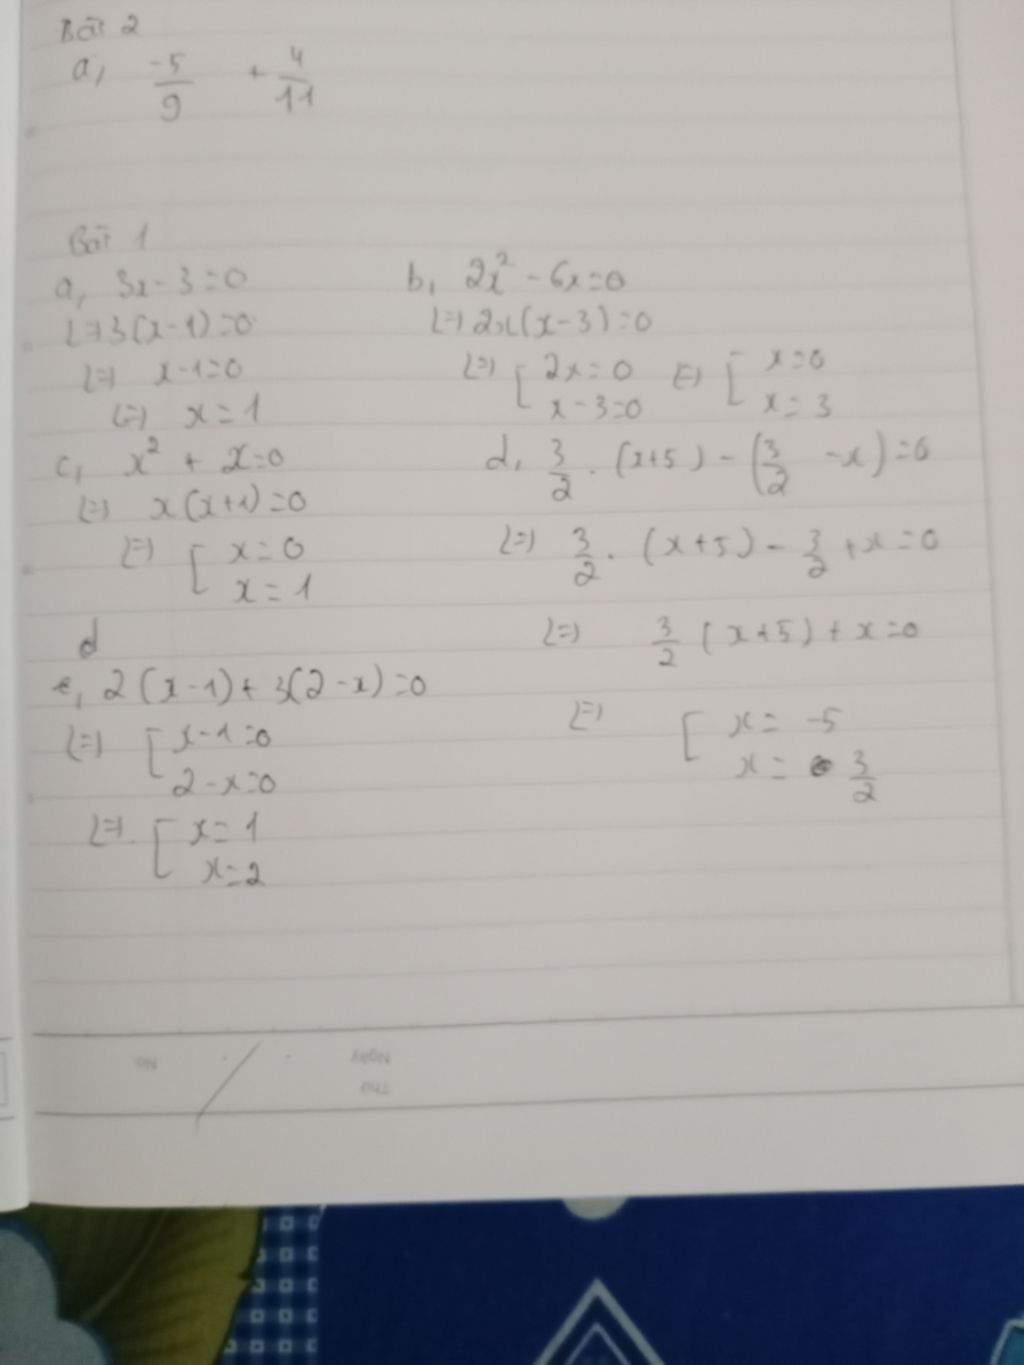 Bài 2
a, -5/9 + 4/11
Bài 1
a, 3x - 3 = 0
<=> 3(x - 1) = 0
<=> x - 1 = 0
<=> x = 1
b, 2x² - 6x = 0
<=> 2x(x - 3) = 0
<=> [ 2x = 0 <=> [ x = 0
x - 3 = 0 x = 3
c, x² + x = 0
<=> x(x + 1) = 0
<=> [ x = 0
x = 1
d, 3/2 . (x + 5) - (3/2 - x) = 0
<=> 3/2 . (x + 5) - 3/2 + x = 0
<=> 3/2 (x + 5) + x = 0
<=> [ x = -5
x = 3/2
d
e, 2(x - 1) + 3(2 - x) = 0
<=> [ x - 1 = 0
2 - x = 0
<=> [ x = 1
x = 2
No
Ngày
Thứ